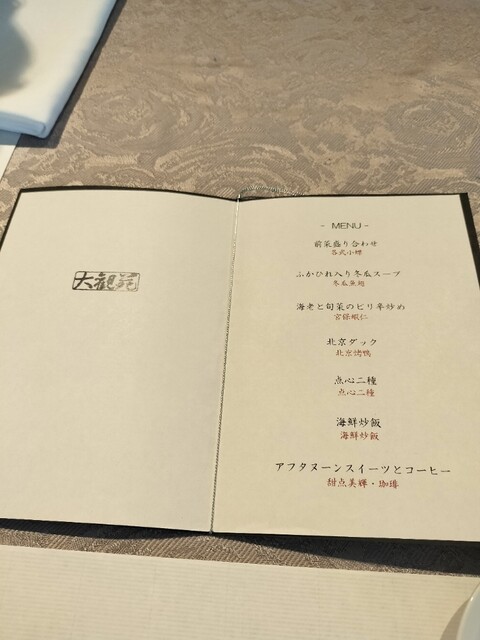 大観苑
- MENU -
前菜盛り合わせ
各式小碟
ふかひれ入り冬瓜スープ
冬瓜魚翅
海老と旬菜のピリ辛炒め
宮保蝦仁
北京ダック
北京烤鴨
点心二種
点心二種
海鮮炒飯
海鮮炒飯
アフタヌーンスイーツとコーヒー
甜点美輝・珈琲